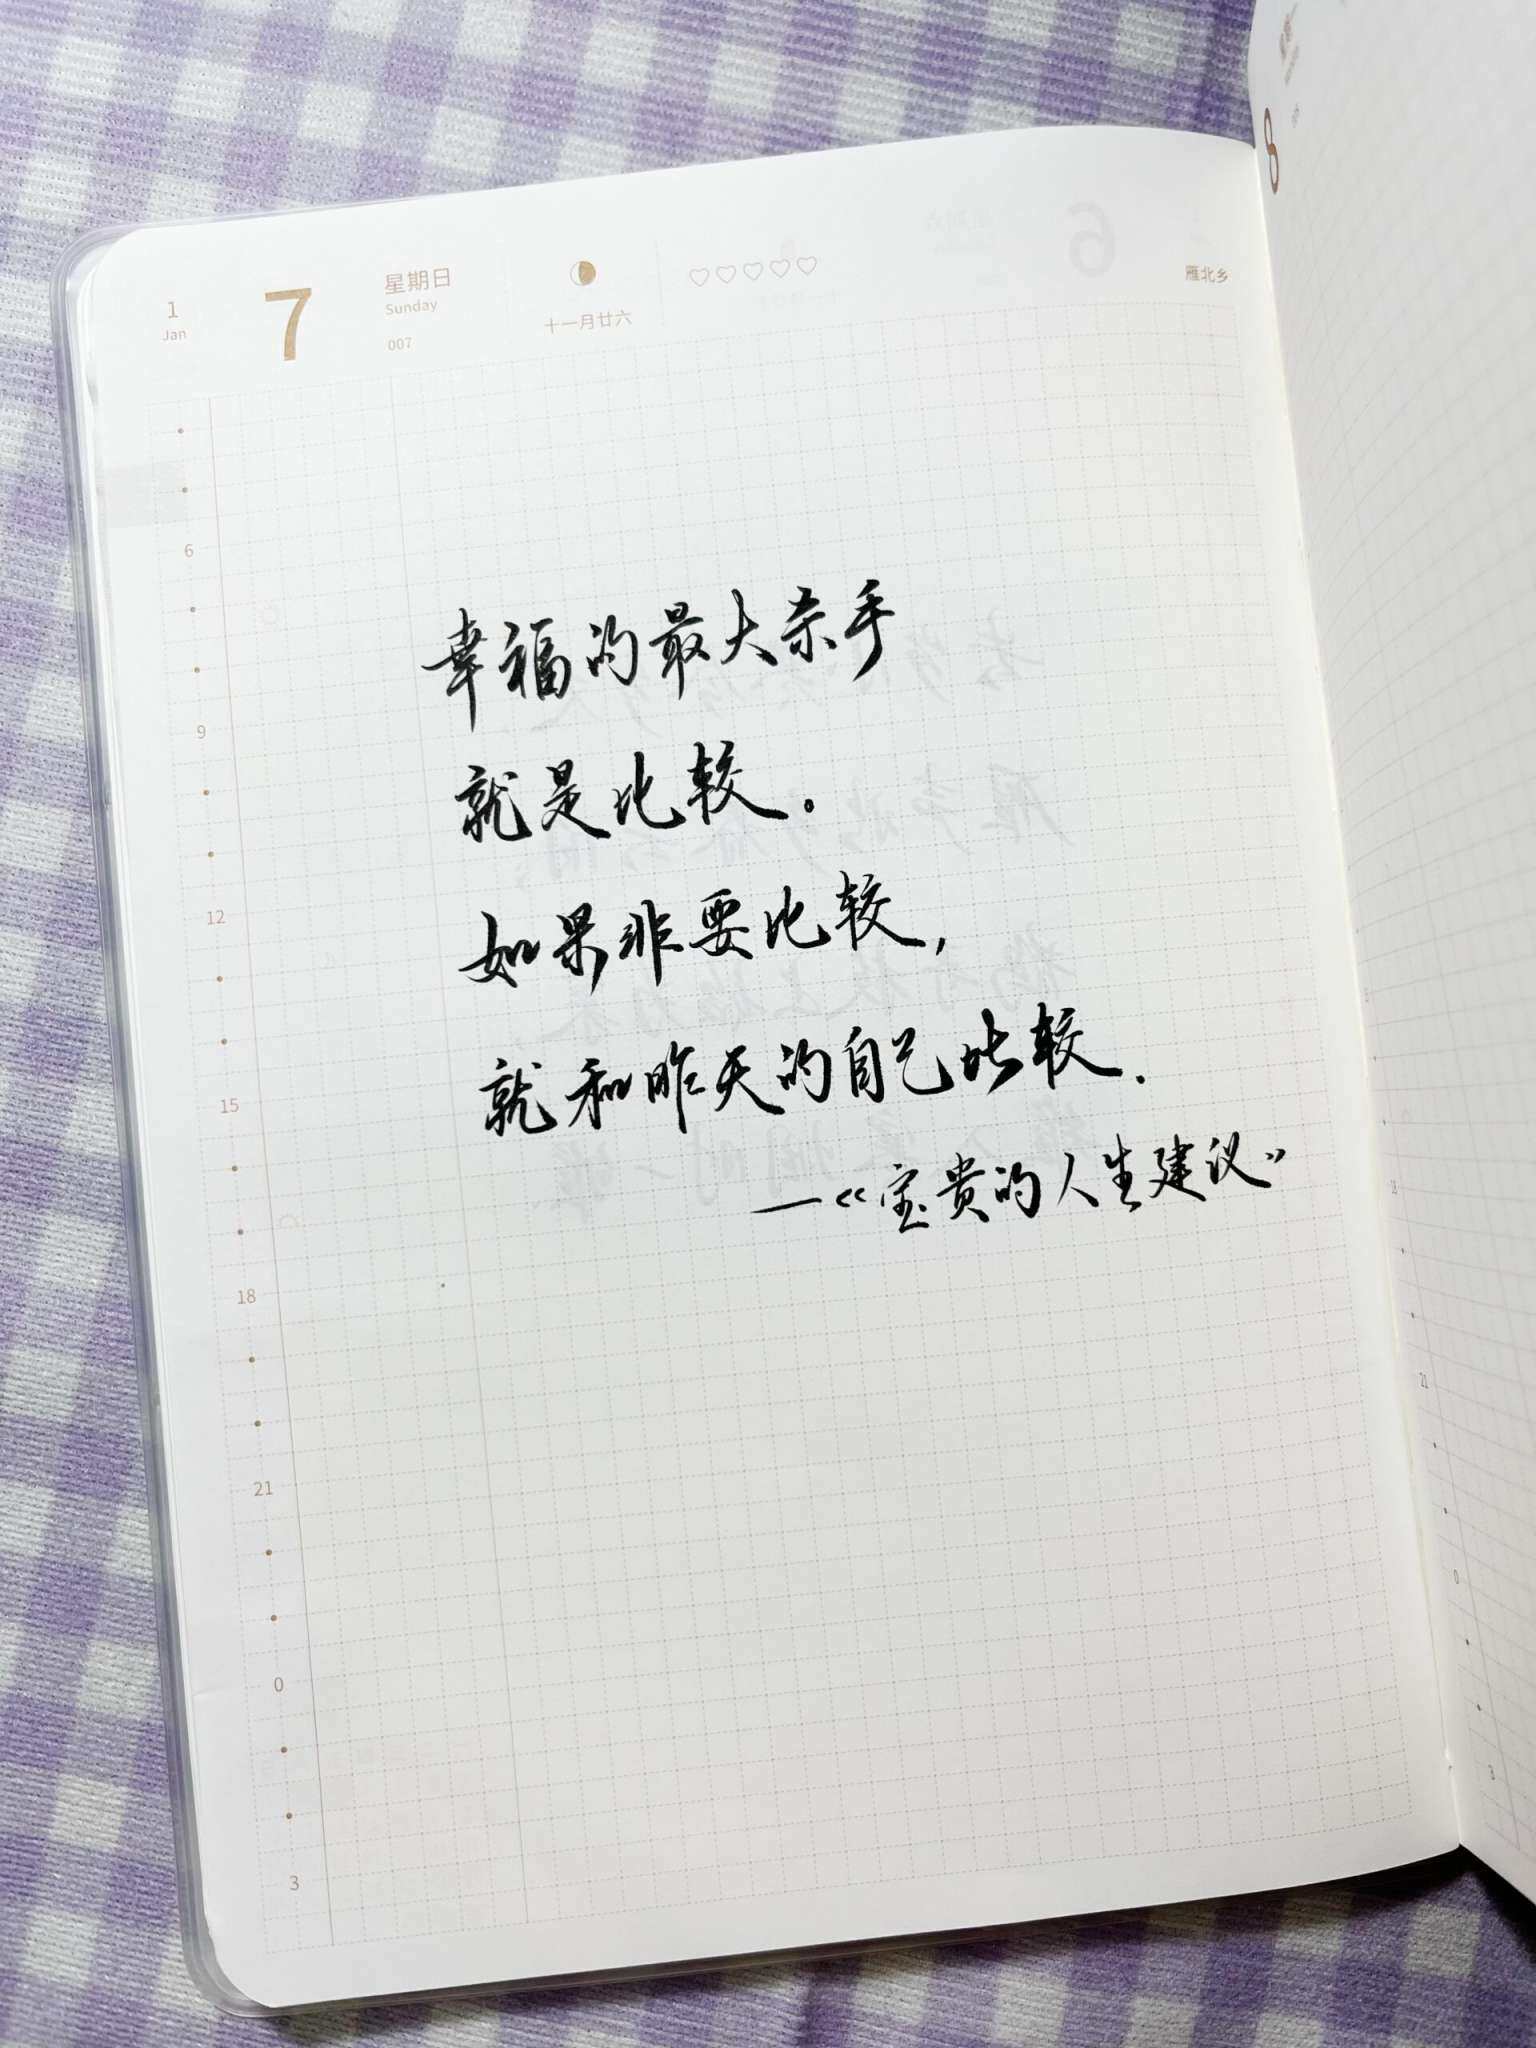 1
Jan
7
星期日
Sunday
007
十一月廿六
雁北乡
6
9
12
15
18
21
0
3
幸福的最大杀手
就是比较。
如果非要比较,
就和昨天的自己比较.
—《宝贵的人生建议》
8
21
0
3